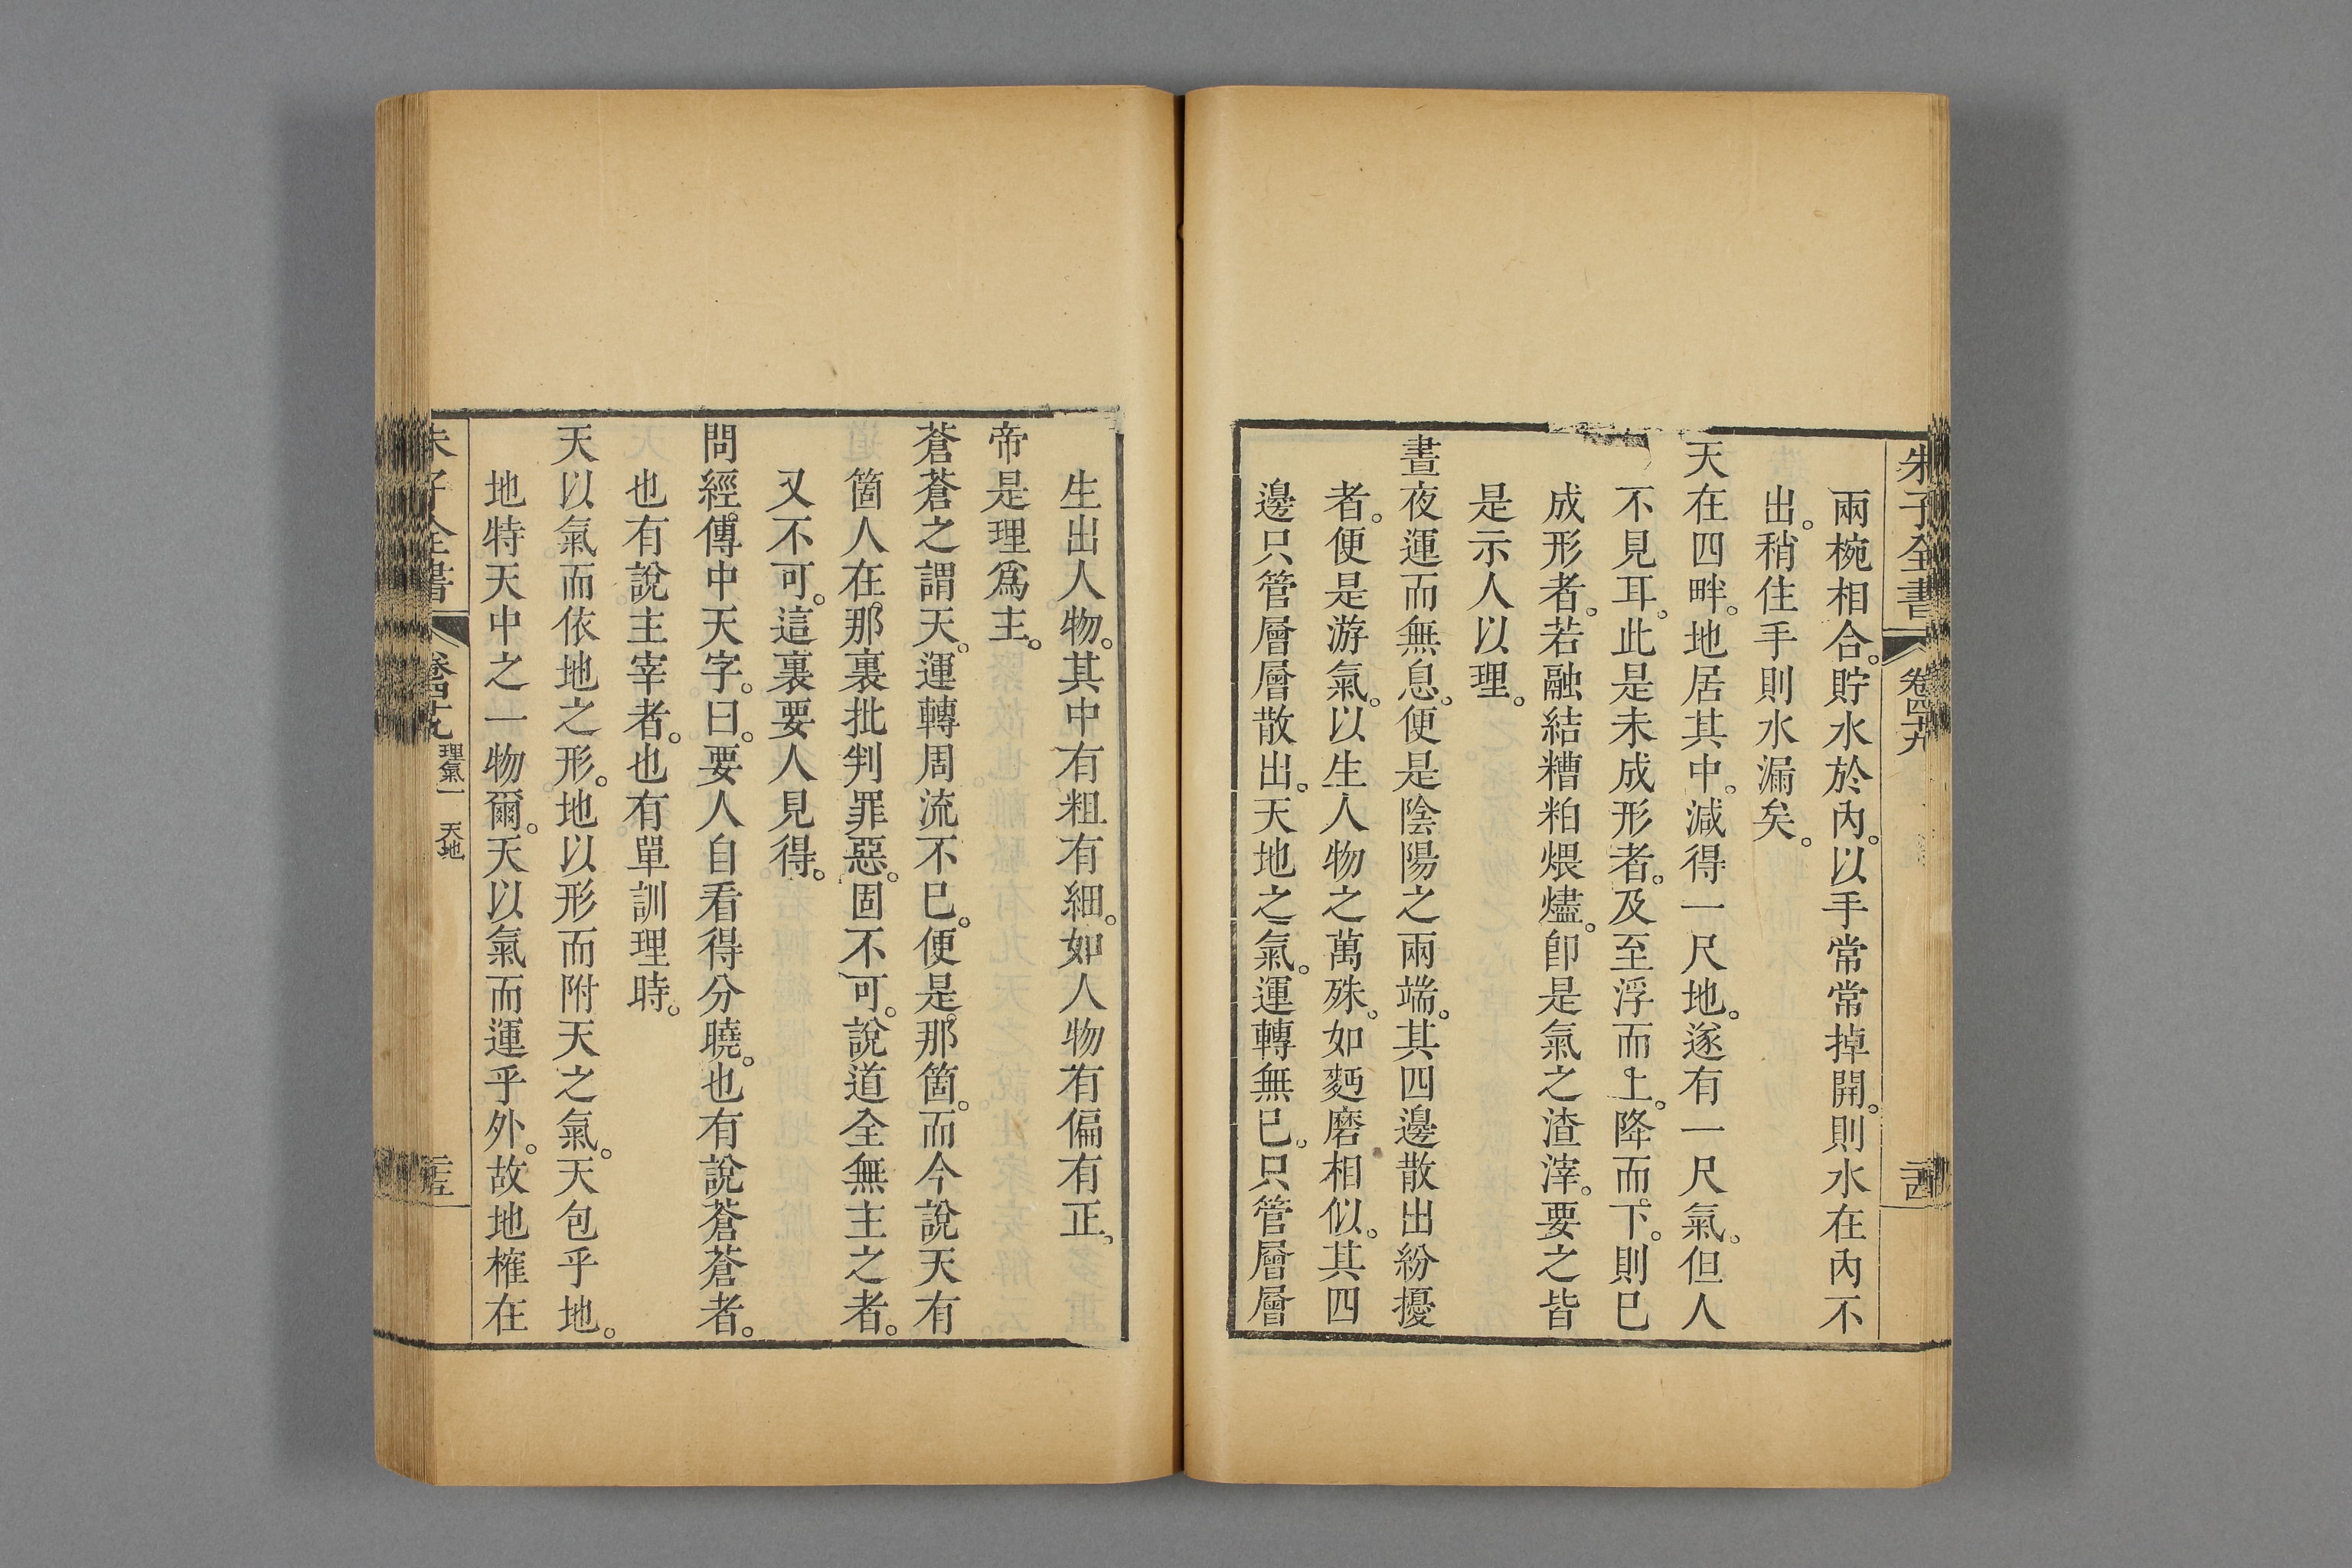 朱子全書 卷四十九 二十四
兩椀相合。貯水於內。以手常常掉開。則水在內不
出。稍住手則水漏矣。
天在四畔。地居其中。減得一尺地。遂有一尺氣。但人
不見耳。此是未成形者。及至浮而上。降而下。則已
成形者。若融結糟粕煨燼。卽是氣之渣滓。要之皆
是示人以理。
晝夜運而無息。便是陰陽之兩端。其四邊散出紛擾
者。便是游氣。以生人物之萬殊。如麪磨相似。其四
邊只管層層散出。天地之氣。運轉無已。只管層層
生出人物。其中有粗有細。如人物有偏有正。
帝是理爲主。
蒼蒼之謂天。運轉周流不已。便是那箇。而今說天有
箇人在那裏批判罪惡。固不可。說道全無主之者。
又不可。這裏要人見得。
問經傳中天字。曰。要人自看得分曉。也有說蒼蒼者。
也有說主宰者。也有單訓理時。
天以氣而依地之形。地以形而附天之氣。天包乎地。
地特天中之一物爾。天以氣而運乎外。故地搉在
朱子全書 卷四十九 理氣一 天地 二十五